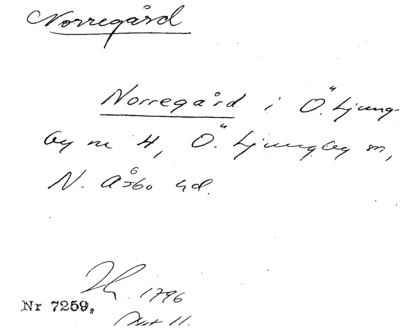 Norregård
Norregård i Ö. Ljung-
by nr 4, Ö. Ljungby sn,
N. Åsbo hd.
1796
Nr 7259.
11.